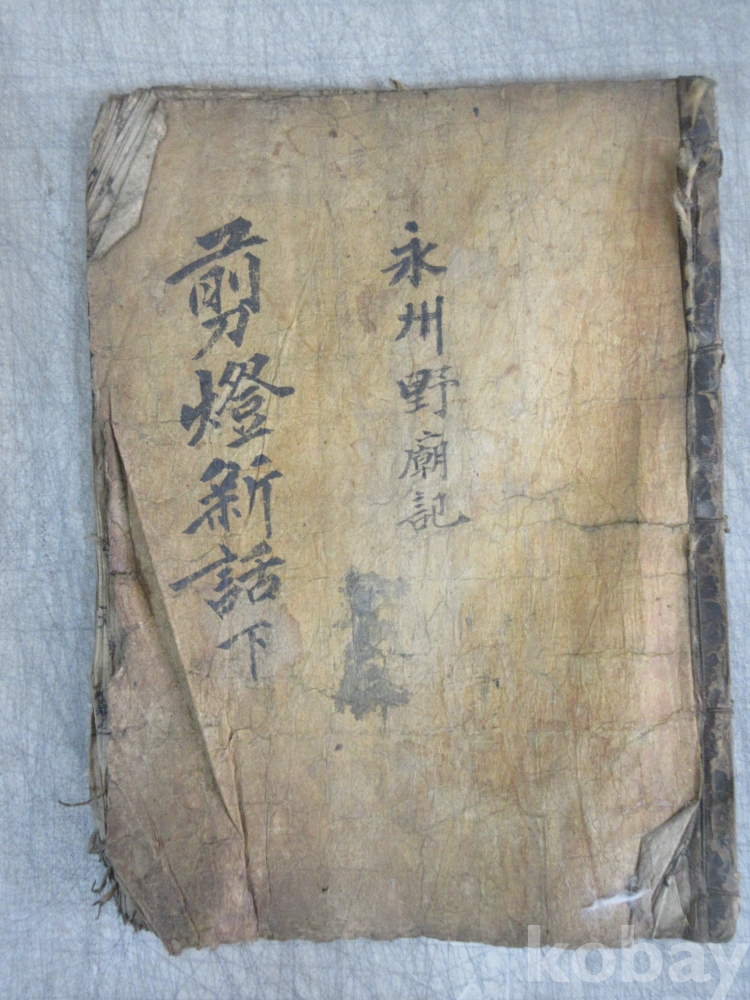 永州野廟記
剪燈新話下
kobay